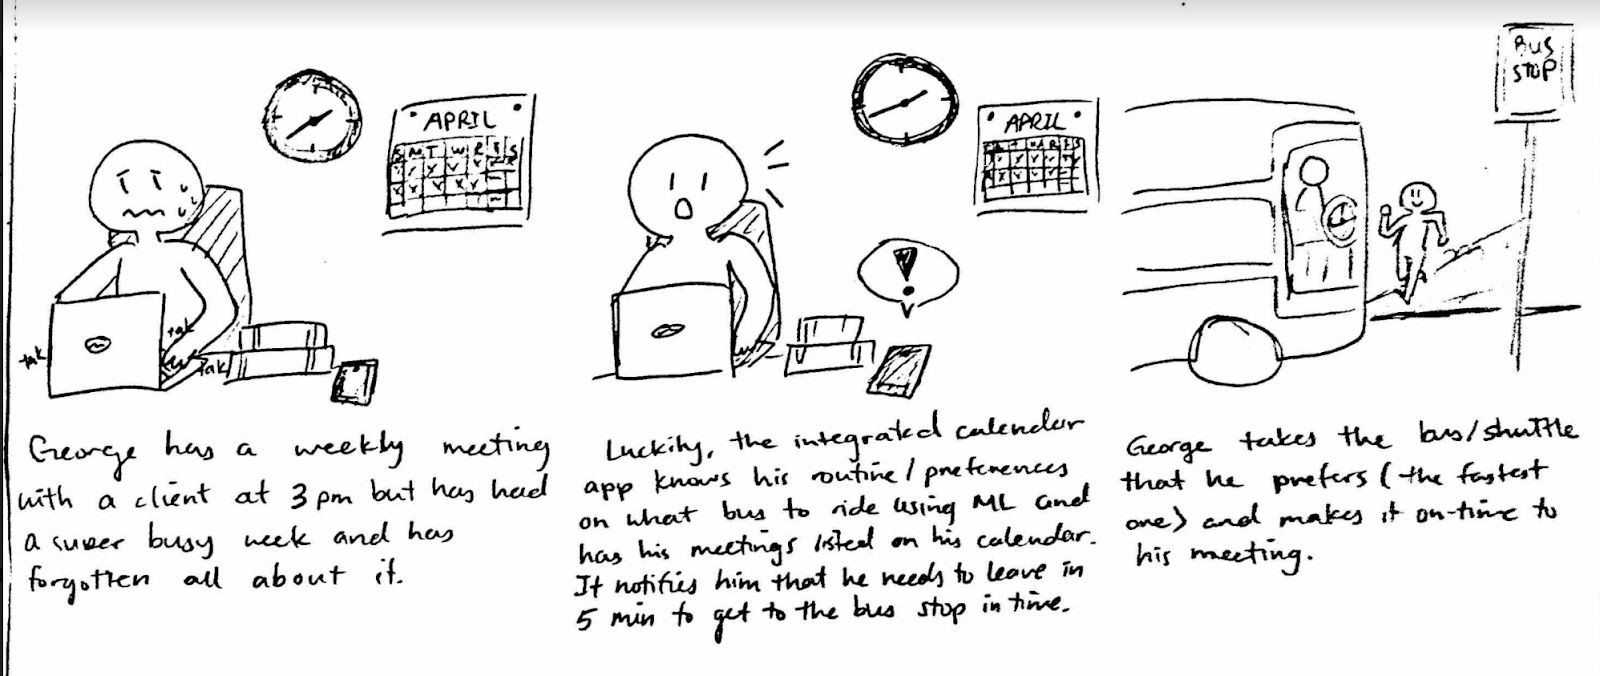 APRIL
S M T W R F S
tak
tak
tak
George has a weekly meeting
with a client at 3pm but has had
a super busy week and has
forgotten all about it.
APRIL
!
Luckily, the integrated calendar
app knows his routine/preferences
on what bus to ride using ML and
has his meetings listed on his calendar.
It notifies him that he needs to leave in
5 min to get to the bus stop in time.
BUS
STOP
George takes the bus/shuttle
that he prefers (the fastest
one) and makes it on-time to
his meeting.